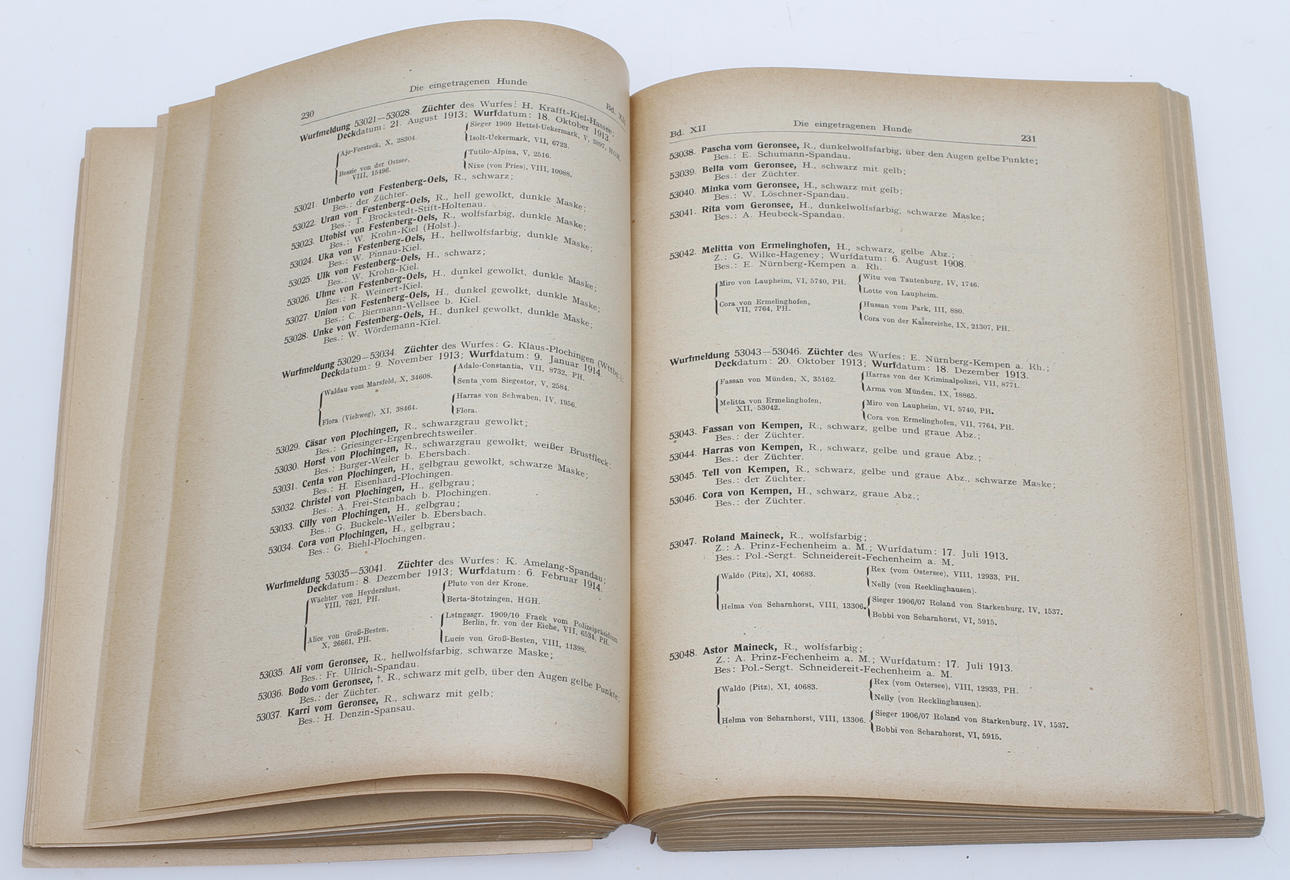 230
Die eingetragenen Hunde
Bd. XII
Wurfmeldung 53021—53028. Züchter des Wurfes: H. Krafft-Kiel-Hassee;
Deckdatum: 21. August 1913; Wurfdatum: 18. Oktober 1913.
Ajo-Forsteck, X, 28304.
Sieger 1909 Hettel-Uckermark, V, 3897, HGH.
Isolt-Uckermark, VII, 6723.
Bessie von der Ostsee,
VIII, 15496.
Tutilo-Alpina, V, 2516.
Nixe (von Pries), VIII, 10088.
53021. Umberto von Festenberg-Oels, R., schwarz;
Bes.: der Züchter.
53022. Uran von Festenberg-Oels, R., hell gewolkt, dunkle Maske;
Bes.: T. Brockstedt-Stift-Holtenau.
53023. Utobist von Festenberg-Oels, R., wolfsfarbig, dunkle Maske;
Bes.: W. Krohn-Kiel (Holst.).
53024. Uka von Festenberg-Oels, H., hellwolfsfarbig, dunkle Maske;
Bes.: W. Pinnau-Kiel.
53025. Ulk von Festenberg-Oels, H., schwarz;
Bes.: W. Krohn-Kiel.
53026. Ulme von Festenberg-Oels, H., dunkel gewolkt, dunkle Maske;
Bes.: R. Weinert-Kiel.
53027. Union von Festenberg-Oels, H., dunkel gewolkt, dunkle Maske;
Bes.: C. Biermann-Wellsee b. Kiel.
53028. Unke von Festenberg-Oels, H., dunkel gewolkt, dunkle Maske;
Bes.: W. Wördemann-Kiel.
Wurfmeldung 53029—53034. Züchter des Wurfes: G. Klaus-Plochingen (Wttbg.);
Deckdatum: 9. November 1913; Wurfdatum: 9. Januar 1914.
Waldau vom Marsfeld, X, 34608.
Adalo-Constantia, VII, 8732, PH.
Senta vom Siegestor, V, 2584.
Flora (Viehweg), XI, 38464.
Harras von Schwaben, IV, 1956.
Flora.
53029. Cäsar von Plochingen, R., schwarzgrau gewolkt;
Bes.: Griesinger-Ergenbrechtsweiler.
53030. Horst von Plochingen, R., schwarzgrau gewolkt, weißer Brustfleck;
Bes.: Burger-Weiler b. Ebersbach.
53031. Centa von Plochingen, H., gelbgrau gewolkt, schwarze Maske;
Bes.: H. Eisenhard-Plochingen.
53032. Christel von Plochingen, H., gelbgrau;
Bes.: A. Frei-Steinbach b. Plochingen.
53033. Cilly von Plochingen, H., gelbgrau;
Bes.: G. Buckele-Weiler b. Ebersbach.
53034. Cora von Plochingen, H., gelbgrau;
Bes.: G. Biehl-Plochingen.
Wurfmeldung 53035—53041. Züchter des Wurfes: K. Amelang-Spandau;
Deckdatum: 8. Dezember 1913; Wurfdatum: 6. Februar 1914.
Wächter von Heyderslust,
VIII, 7621, PH.
Pluto von der Krone.
Berta-Stotzingen, HGH.
Alice von Groß-Besten,
X, 26661, PH.
Lstngssgr. 1909/10 Frack vom Polizeipräsidium
Berlin, fr. von der Eiche, VII, 6534, PH.
Lucie von Groß-Besten, VIII, 11398.
53035. Ali vom Geronsee, R., hellwolfsfarbig, schwarze Maske;
Bes.: Fr. Ullrich-Spandau.
53036. Bodo vom Geronsee, †. R., schwarz mit gelb, über den Augen gelbe Punkte;
Bes.: der Züchter.
53037. Karri vom Geronsee, R., schwarz mit gelb;
Bes.: H. Denzin-Spansau.
Bd. XII
Die eingetragenen Hunde
231
53038. Pascha vom Geronsee, R., dunkelwolfsfarbig, über den Augen gelbe Punkte;
Bes.: E. Schumann-Spandau.
53039. Bella vom Geronsee, H., schwarz mit gelb;
Bes.: der Züchter.
53040. Minka vom Geronsee, H., schwarz mit gelb;
Bes.: W. Löschner-Spandau.
53041. Rita vom Geronsee, H., dunkelwolfsfarbig, schwarze Maske;
Bes.: A. Heubeck-Spandau.
53042. Melitta von Ermelinghofen, H., schwarz, gelbe Abz.;
Z.: G. Wilke-Hageney; Wurfdatum: 6. August 1908.
Bes.: E. Nürnberg-Kempen a. Rh.
Miro von Laupheim, VI, 5740, PH.
Witu von Tautenburg, IV, 1746.
Lotte von Laupheim.
Cora von Ermelinghofen,
VII, 7764, PH.
Hussan vom Park, III, 880.
Cora von der Kaisereiche, IX, 21307, PH.
Wurfmeldung 53043—53046. Züchter des Wurfes: E. Nürnberg-Kempen a. Rh.;
Deckdatum: 20. Oktober 1913; Wurfdatum: 18. Dezember 1913.
Fassan von Münden, X, 35162.
Harras von der Kriminalpolizei, VII, 8771.
Arma von Münden, IX, 18865.
Melitta von Ermelinghofen,
XII, 53042.
Miro von Laupheim, VI, 5740, PH.
Cora von Ermelinghofen, VII, 7764, PH.
53043. Fassan von Kempen, R., schwarz, gelbe und graue Abz.;
Bes.: der Züchter.
53044. Harras von Kempen, R., schwarz, gelbe und graue Abz.;
Bes.: der Züchter.
53045. Tell von Kempen, R., schwarz, gelbe und graue Abz., schwarze Maske;
Bes.: der Züchter.
53046. Cora von Kempen, H., schwarz, graue Abz.;
Bes.: der Züchter.
53047. Roland Maineck, R., wolfsfarbig;
Z.: A. Prinz-Fechenheim a. M.; Wurfdatum: 17. Juli 1913.
Bes.: Pol.-Sergt. Schneidereit-Fechenheim a. M.
Waldo (Pitz), XI, 40683.
Rex (vom Ostersee), VIII, 12933, PH.
Nelly (von Recklinghausen).
Helma von Scharnhorst, VIII, 13306.
Sieger 1906/07 Roland von Starkenburg, IV, 1537.
Bobbi von Scharnhorst, VI, 5915.
53048. Astor Maineck, R., wolfsfarbig;
Z.: A. Prinz-Fechenheim a. M.; Wurfdatum: 17. Juli 1913.
Bes: Pol.-Sergt. Schneidereit-Fechenheim a. M.
Waldo (Pitz), XI, 40683.
Rex (vom Ostersee), VIII, 12933, PH.
Nelly (von Recklinghausen).
Helma von Scharnhorst, VIII, 13306.
Sieger 1906/07 Roland von Starkenburg, IV, 1537.
Bobbi von Scharnhorst, VI, 5915.